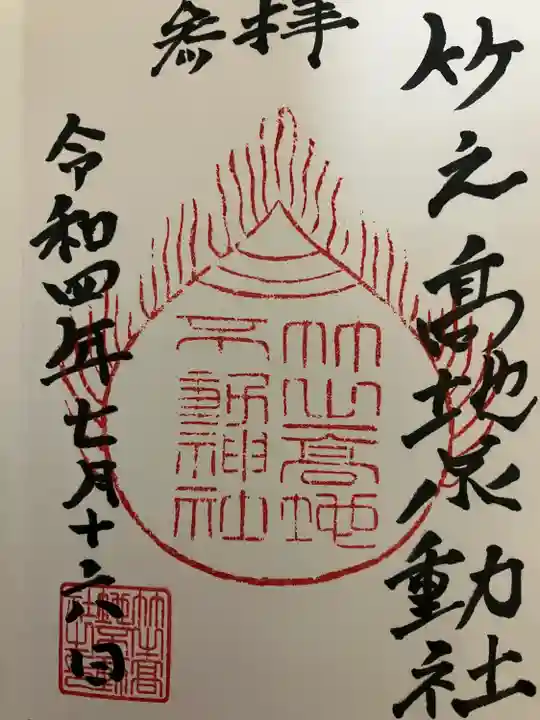 参拝
竹之高地不動社
竹之高地
不動神社
令和四年七月十六日
竹之高
地不動
社之印